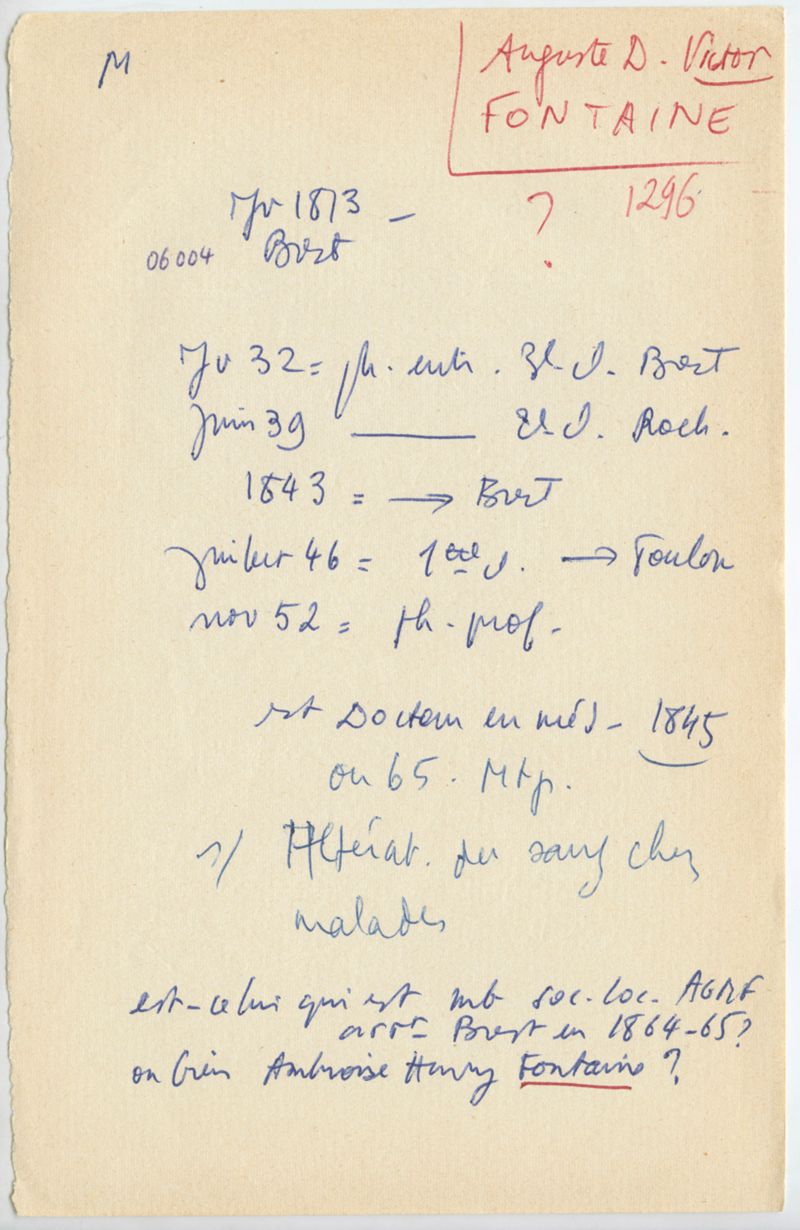 M
Auguste D. Victor
FONTAINE
1296
?
Jv 1813 -
06004 Brest
Jv 32 = ph. entr. 3e cl. Brest
Juin 39 ——— 2e cl. Roch.
1843 = → Brest
juillet 46 = 1ère cl. → Toulon
nov 52 = ph. prof.
est Docteur en méd - 1845
ou 65. Mtp.
1/ Altérat. du sang chez
malades
est-celui qui est mb soc. loc. AGMF
arrt Brest en 1864-65?
ou bien Ambroise Henry Fontaine ?